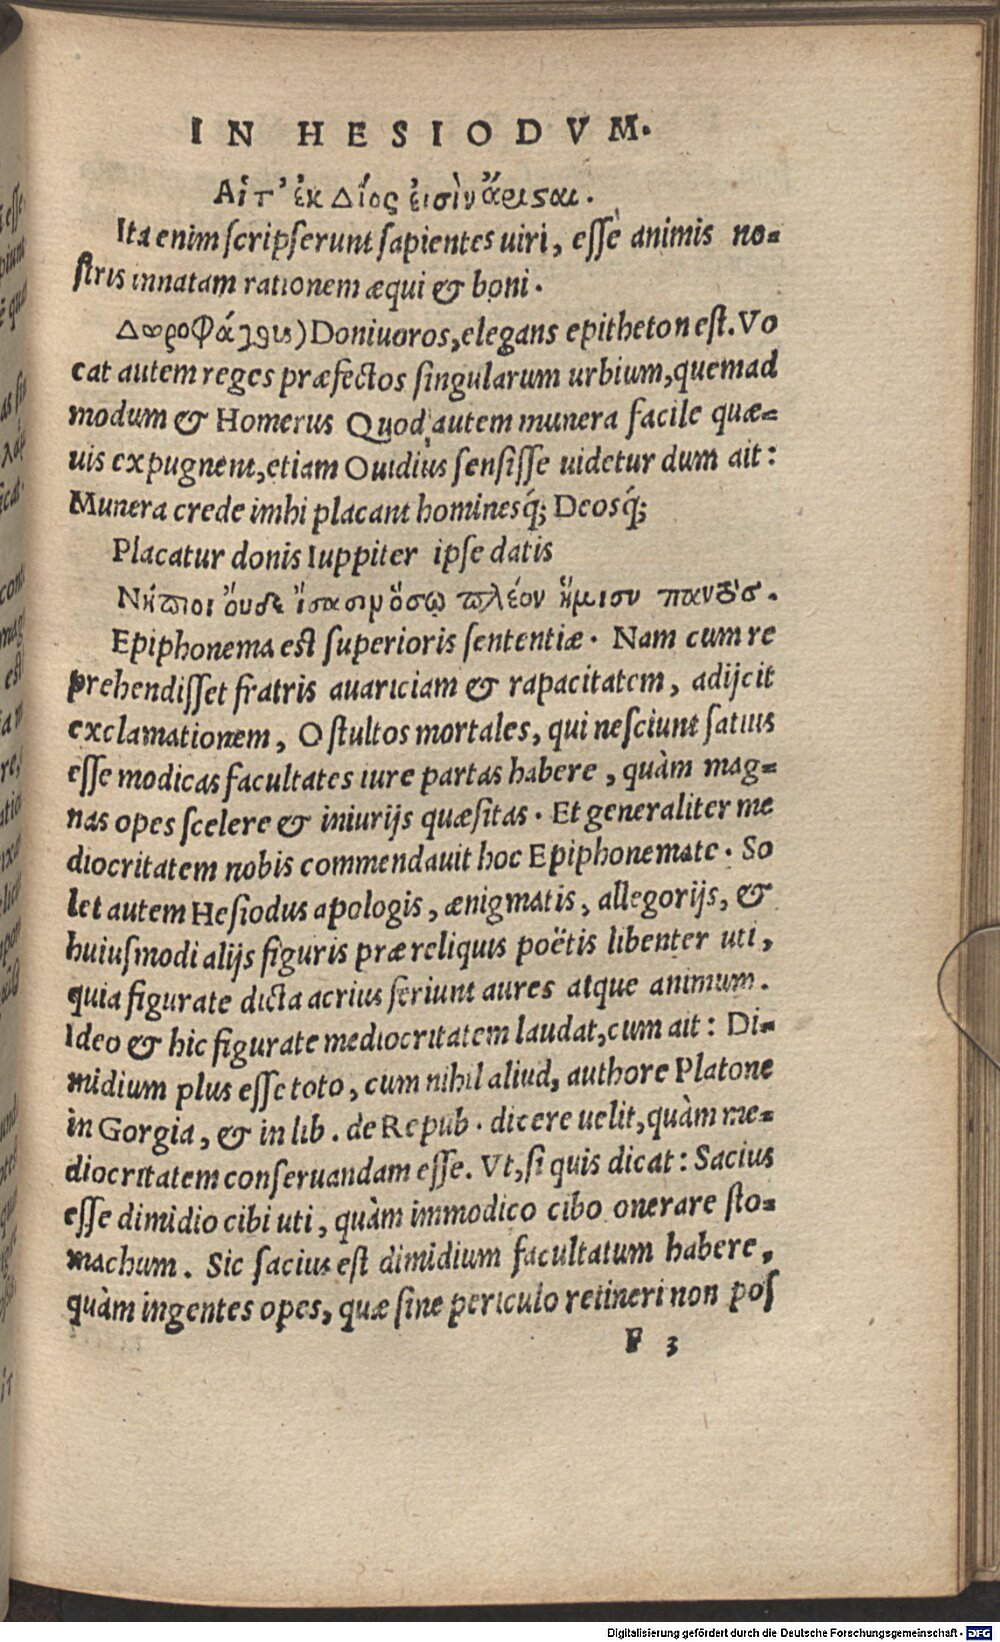 IN HESIODVM.
Αἵτ’ ἐκ Δίος ἐισὶν ἄρισαι.
Ita enim scripserunt sapientes uiri, esse animis no=
stris innatam rationem æqui & boni.
Δωροφάγοι) Doniuoros, elegans epitheton est. Vo
cat autem reges præfectos singularum urbium, quemad
modum & Homerus Quod autem munera facile quæ=
uis expugnent, etiam Ouidius sensisse uidetur dum ait:
Munera crede mihi placant hominesq́; Deosq́;
Placatur donis Iuppiter ipse datis
Νήπιοι ὄυδε ἴσασιν ὅσῳ πλέον ἥμισυ παντός.
Epiphonema est superioris sententiæ. Nam cum re
prehendisset fratris auariciam & rapacitatem, adijcit
exclamationem, O stultos mortales, qui nesciunt satius
esse modicas facultates iure partas habere, quàm mag=
nas opes scelere & iniurijs quæsitas. Et generaliter me
diocritatem nobis commendauit hoc Epiphonemate. So
let autem Hesiodus apologis, ænigmatis, allegorijs, &
huiusmodi alijs figuris præ reliquis poëtis libenter uti,
quia figurate dicta acrius feriunt aures atque animum.
Ideo & hic figurate mediocritatem laudat, cum ait: Di=
midium plus esse toto, cum nihil aliud, authore Platone
in Gorgia, & in lib. de Repub. dicere uelit, quàm me=
diocritatem conseruandam esse. Vt, si quis dicat: Sacius
esse dimidio cibi uti, quàm immodico cibo onerare sto=
machum. Sic sacius est dimidium facultatum habere,
quàm ingentes opes, quæ sine periculo retineri non pos
F 3
Digitalisierung gefördert durch die Deutsche Forschungsgemeinschaft - DFG